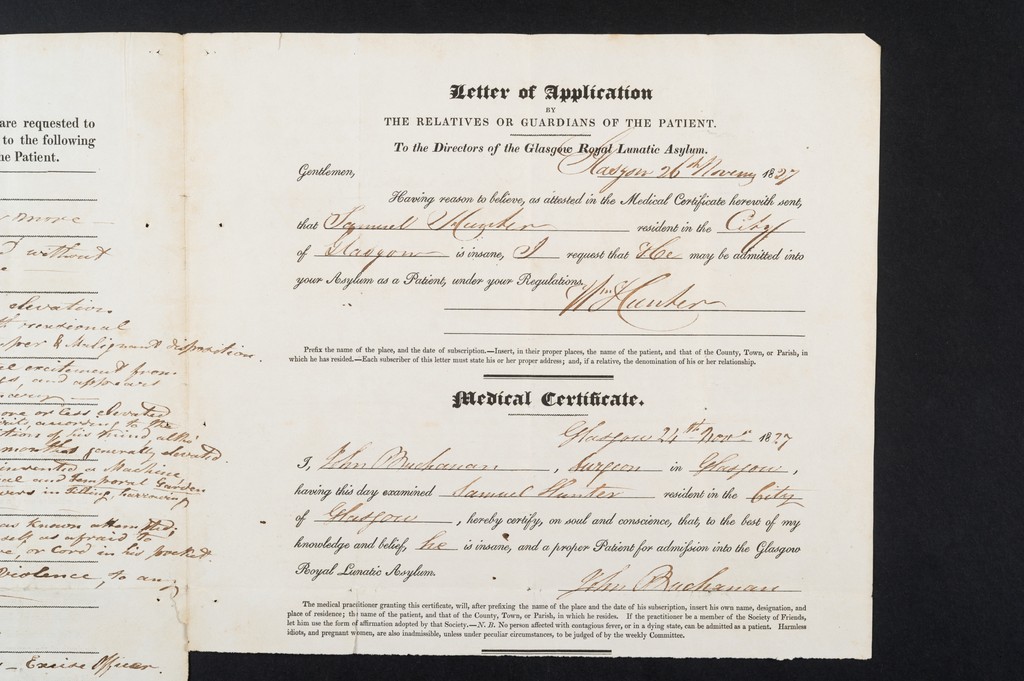 are requested to
to the following
he Patient.
more
without
elevation
& Malignant disposition.
excitement from
and appears
more or less elevated
according to the
of his mind, altho'
months generally elevated.
invented a Machine
and temporal Garden
in tilling, harrowing
known attempted;
self as afraid to
or Cord in his pocket
violence, to any
Excise Officer
Letter of Application
BY
THE RELATIVES OR GUARDIANS OF THE PATIENT.
To the Directors of the Glasgow Royal Lunatic Asylum.
Glasgow 26th Novemr 1827
Gentlemen,
Having reason to believe, as attested in the Medical Certificate herewith sent,
that Samuell Hunter resident in the City
of Glasgow is insane, I request that He may be admitted into
your Asylum as a Patient, under your Regulations.
Wm Hunter
Prefix the name of the place, and the date of subscription.—Insert, in their proper places, the name of the patient, and that of the County, Town, or Parish, in
which he has resided.—Each subscriber of this letter must state his or her proper address; and, if a relative, the denomination of his or her relationship.
Medical Certificate.
Glasgow 24th Novr 1827
I, John Buchanan, Surgeon in Glasgow,
having this day examined Samuel Hunter resident in the City
of Glasgow, hereby certify, on soul and conscience, that, to the best of my
knowledge and belief, he is insane, and a proper Patient for admission into the Glasgow
Royal Lunatic Asylum.
John Buchanan
The medical practitioner granting this certificate, will, after prefixing the name of the place and the date of his subscription, insert his own name, designation, and
place of residence; the name of the patient, and that of the County, Town, or Parish, in which he resides. If the practitioner be a member of the Society of Friends,
let him use the form of affirmation adopted by that Society.—N. B. No person affected with contagious fever, or in a dying state, can be admitted as a patient. Harmless
idiots, and pregnant women, are also inadmissible, unless under peculiar circumstances, to be judged of by the weekly Committee.